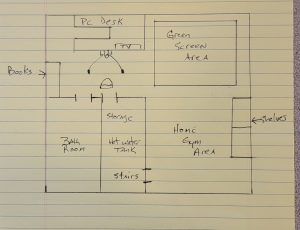 PC Desk
TV
Green
Screen
Area
Books
Storage
Bath
Room
Hot water
Tank
Stairs
Home
Gym
Area
Shelves